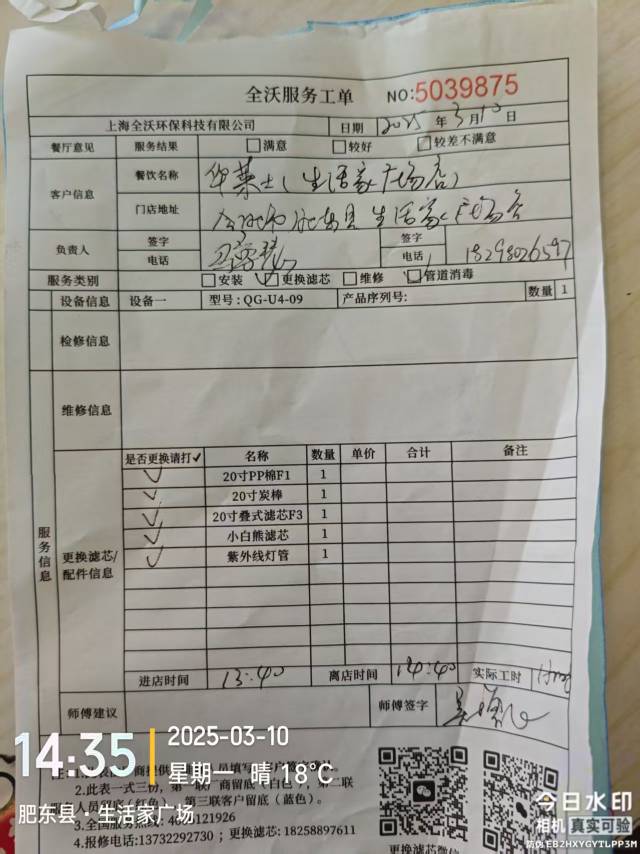 全沃服务工单 NO:5039875
上海全沃环保科技有限公司 日期 2025年3月10日
餐厅意见 服务结果 满意 较好 较差不满意
客户信息 餐饮名称 华莱士(生活家广场店)
门店地址 合肥市肥东县生活家广场店
负责人 签字 电话 签字 电话 18298026597
服务类别 安装 更换滤芯 维修 管道消毒
设备信息 设备一 型号:QG-U4-09 产品序列号: 数量 1
检修信息
维修信息
服务信息
更换滤芯/配件信息
是否更换请打✓ 名称 数量 单价 合计 备注
✓ 20寸PP棉F1 1
✓ 20寸炭棒 1
✓ 20寸叠式滤芯F3 1
✓ 小白熊滤芯 1
✓ 紫外线灯管 1
进店时间 13:40 离店时间 14:40 实际工时
师傅建议 师傅签字
2.此表一式三份,第一联厂商留底(白色)、第二联
留底(红色)、第三联客户留底(蓝色)。
3.全国服务热线:
4.报修电话:13732292730;更换滤芯:18258897611
14:35
2025-03-10
星期一 晴 18℃
肥东县·生活家广场
今日水印
相机 真实可验